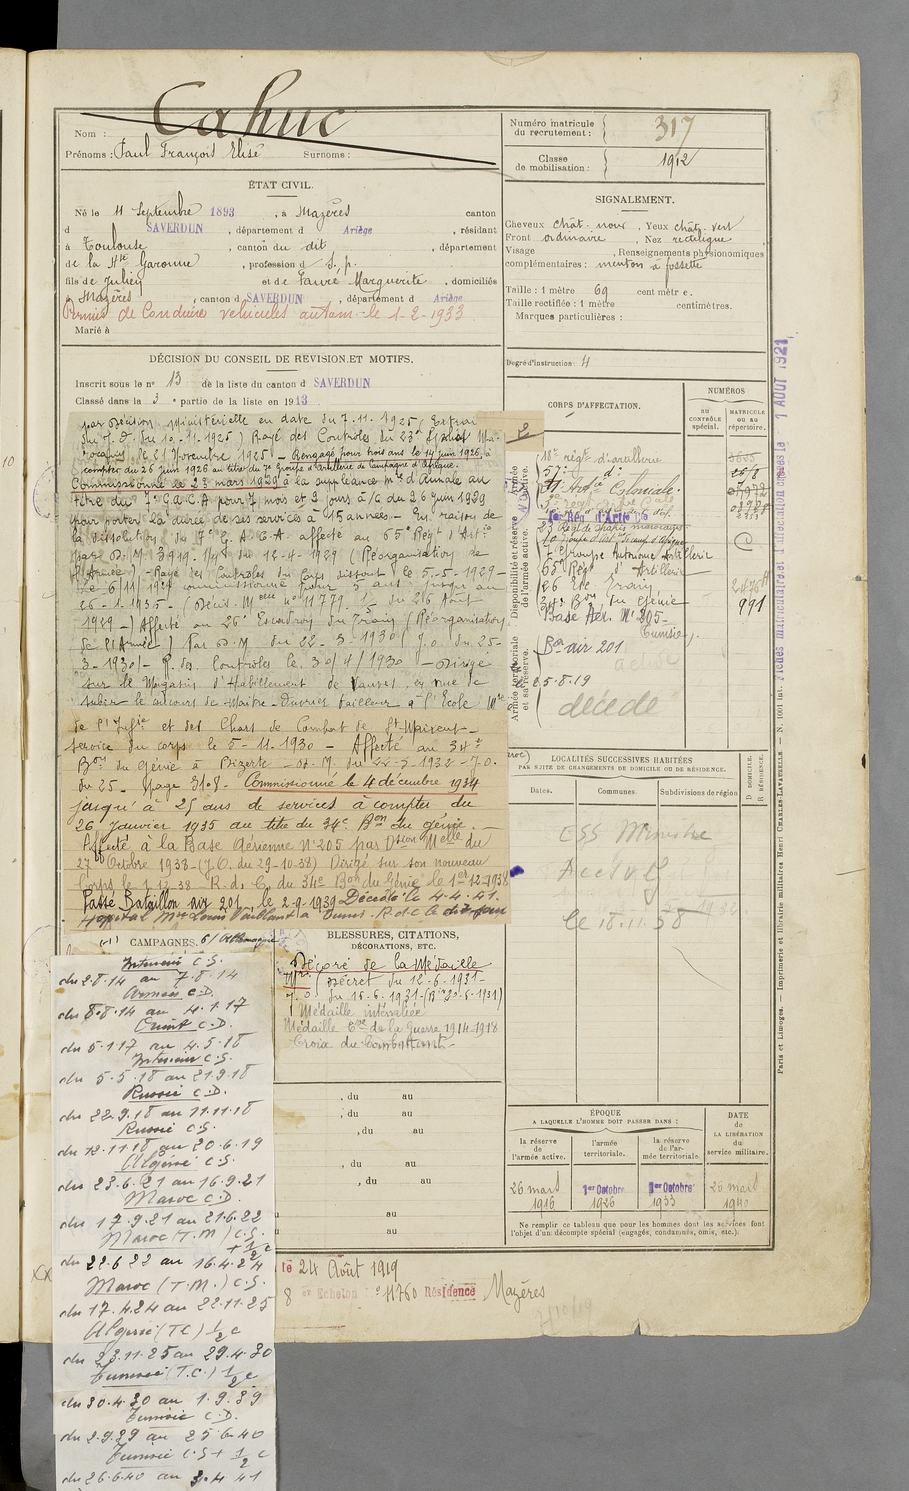 Cahuc
Nom :
Prénoms : Paul François Elisé Surnoms :
Numéro matricule du recrutement : 317
Classe de mobilisation : 1912
ÉTAT CIVIL.
Né le 11 Septembre 1893, à Mazères canton
d SAVERDUN, département d Ariège, résidant
à Toulouse, canton du dit, département
de la Hte Garonne, profession d S. p.
fils de Julien et de Faure Marguerite, domiciliés
à Mazères, canton d SAVERDUN, département d Ariège
Permis de Conduire vehicules autom. le 1-2-1933
Marié à
SIGNALEMENT.
Cheveux chât. noir, Yeux chât. vert
Front ordinaire, Nez rectiligne
Visage , Renseignements physionomiques
complémentaires : menton à fossette
Taille : 1 mètre 69 centimètres.
Taille rectifiée : 1 mètre centimètres.
Marques particulières :
Degré d'instruction : 4
DÉCISION DU CONSEIL DE REVISION ET MOTIFS.
Inscrit sous le n° 13 de la liste du canton d SAVERDUN
Classé dans la 3e partie de la liste en 1913
par décision ministérielle en date du 7.11.1925 (Extrait
du J.O. du 10.11.1925) Rayé des Contrôles du 23e
le 21 Novembre 1925 - Rengagé pour trois ans le 14 juin 1926, à
compter du 26 juin 1926 au titre du 7e Groupe d'artillerie de Campagne d'Afrique.
Commissionné le 23 mars 1929 à la suppléance d'Aumale au
titre du 7e G.A.C.A pour 7 mois et 3 jours à/c du 26 juin 1929
pour porter la durée de ses services à 15 années. - En raison de
la dissolution du 7e G.A.C.A. affecté au 65e Régt d'Artie
par D.M 3919. 1/4 du 12-4-1929 (Réorganisation de
l'Armée) - Rayé des Contrôles du Corps dissout le 5-5-1929 -
Le 6/11/1929 commissionné pour 5 ans jusqu'au
26-1-1935 - (Décis. Melle n° 11779 1/5 du 26 Août
1929 -) Affecté au 26e Escadron du Train (Réorganisation
de l'Armée) Par D.M du 22-3-1930 (J.O. du 25-
3-1930) - R. des Contrôles le 30/4/1930 - Dirigé
sur le Magasin d'Habillement de Vanves, en vue de
subir le concours de Maître-Ouvrier Tailleur à l'Ecole Mre
de l'Infie et des Chars de Combat de St Maixent -
service du corps le 5-11-1930 - Affecté au 34e
Bon du Génie à Bizerte - D.M. du 22-3-1932 - J.O.
du 25 - page 3108 - Commissionné le 4 décembre 1934
jusqu'à 25 ans de services à compter du
26 Janvier 1935 au titre du 34e Bon du génie. -
Affecté à la Base Aérienne N° 205 par Dston Melle du
27 Octobre 1938 - (J.O. du 29-10-38) Dirigé sur son nouveau
Corps le 1-12-38 - R. d. C. du 34e Bon du Génie le 1er-12-1938
Passé Bataillon air 201, le 2-9-1939 Décédé le 4.4.41.
Hôpital Mre Louis Vaillant à Tunis. R. d. c. le dit jour
CORPS D'AFFECTATION.
NUMÉROS
au contrôle spécial.
MATRICULE ou au répertoire.
Disponibilité et réserve de l'armée active.
Armée active.
Armée territoriale et sa réserve.
18e régt d'artillerie
57e d°
Artie Coloniale.
1er Rég. d'Artie
7e Groupe Autonome Artillerie
65e Régt d'Artillerie
26 Ecr Train
34e Bon du Génie 991
Base Aér. N° 205
Tunisie).
Bon air 201
25-8-19
décédé
LOCALITÉS SUCCESSIVES HABITÉES
PAR SUITE DE CHANGEMENTS DE DOMICILE OU DE RÉSIDENCE.
Dates. Communes. Subdivisions de région
D DOMICILE. R RÉSIDENCE.
le 18.11.38
CAMPAGNES. c/ Allemagne
Intérieur C.S.
du 2-8-14 au 7.8.14
Armées C.D.
du 8-8-14 au 4.1.17
Orient C.D.
du 5.1.17 au 4.5.18
Intérieur C.S.
du 5.5.18 au 21.9.18
Russie C.D.
du 22.9.18 au 11.11.18
Russie C.S.
du 12.11.18 au 20.6.19
Algérie C.S.
du 23.6.21 au 16.9.21
Maroc C.D.
du 17.9.21 au 21.6.22
Maroc (T.M) C.S.
+ 1/2 c
du 22.6.22 au 16.4.24
Maroc (T.M.) C.S.
du 17.4.24 au 22.11.25
Algérie (TC) 1/2 c
du 23.11.25 au 29.4.30
Tunisie (T.C.) 1/2 c
du 30.4.30 au 1.9.39
Tunisie C.D.
du 2.9.39 au 25.6.40
Tunisie C.S + 1/2 c
du 26.6.40 au 3.4.41
BLESSURES, CITATIONS,
DÉCORATIONS, ETC.
Décoré de la Médaille
Mre (Décret du 12-6-1931-
J.O. du 15-6-1931-
Médaille interalliée
Médaille Cve de la Guerre 1914-1918
Croix du Combattant -
, du au
, du au
, du au
, du au
, du au
u au
u au
ÉPOQUE
A LAQUELLE L'HOMME DOIT PASSER DANS :
la réserve de l'armée active.
l'armée territoriale.
la réserve de l'armée territoriale.
DATE de LA LIBÉRATION du service militaire.
26 mars 1916
1er Octobre 1926
1er Octobre 1933
26 mars 1940
Ne remplir ce tableau que pour les hommes dont les services font
l'objet d'un décompte spécial (engagés, condamnés, omis, etc.).
le 24 Août 1919
8 er Echelon N° 11760 Résidence Mazères
Paris et Limoges. — Imprimerie et librairie militaires Henri CHARLES-LAVAUZELLE — N. 1001 Int.
1 AOUT 1921